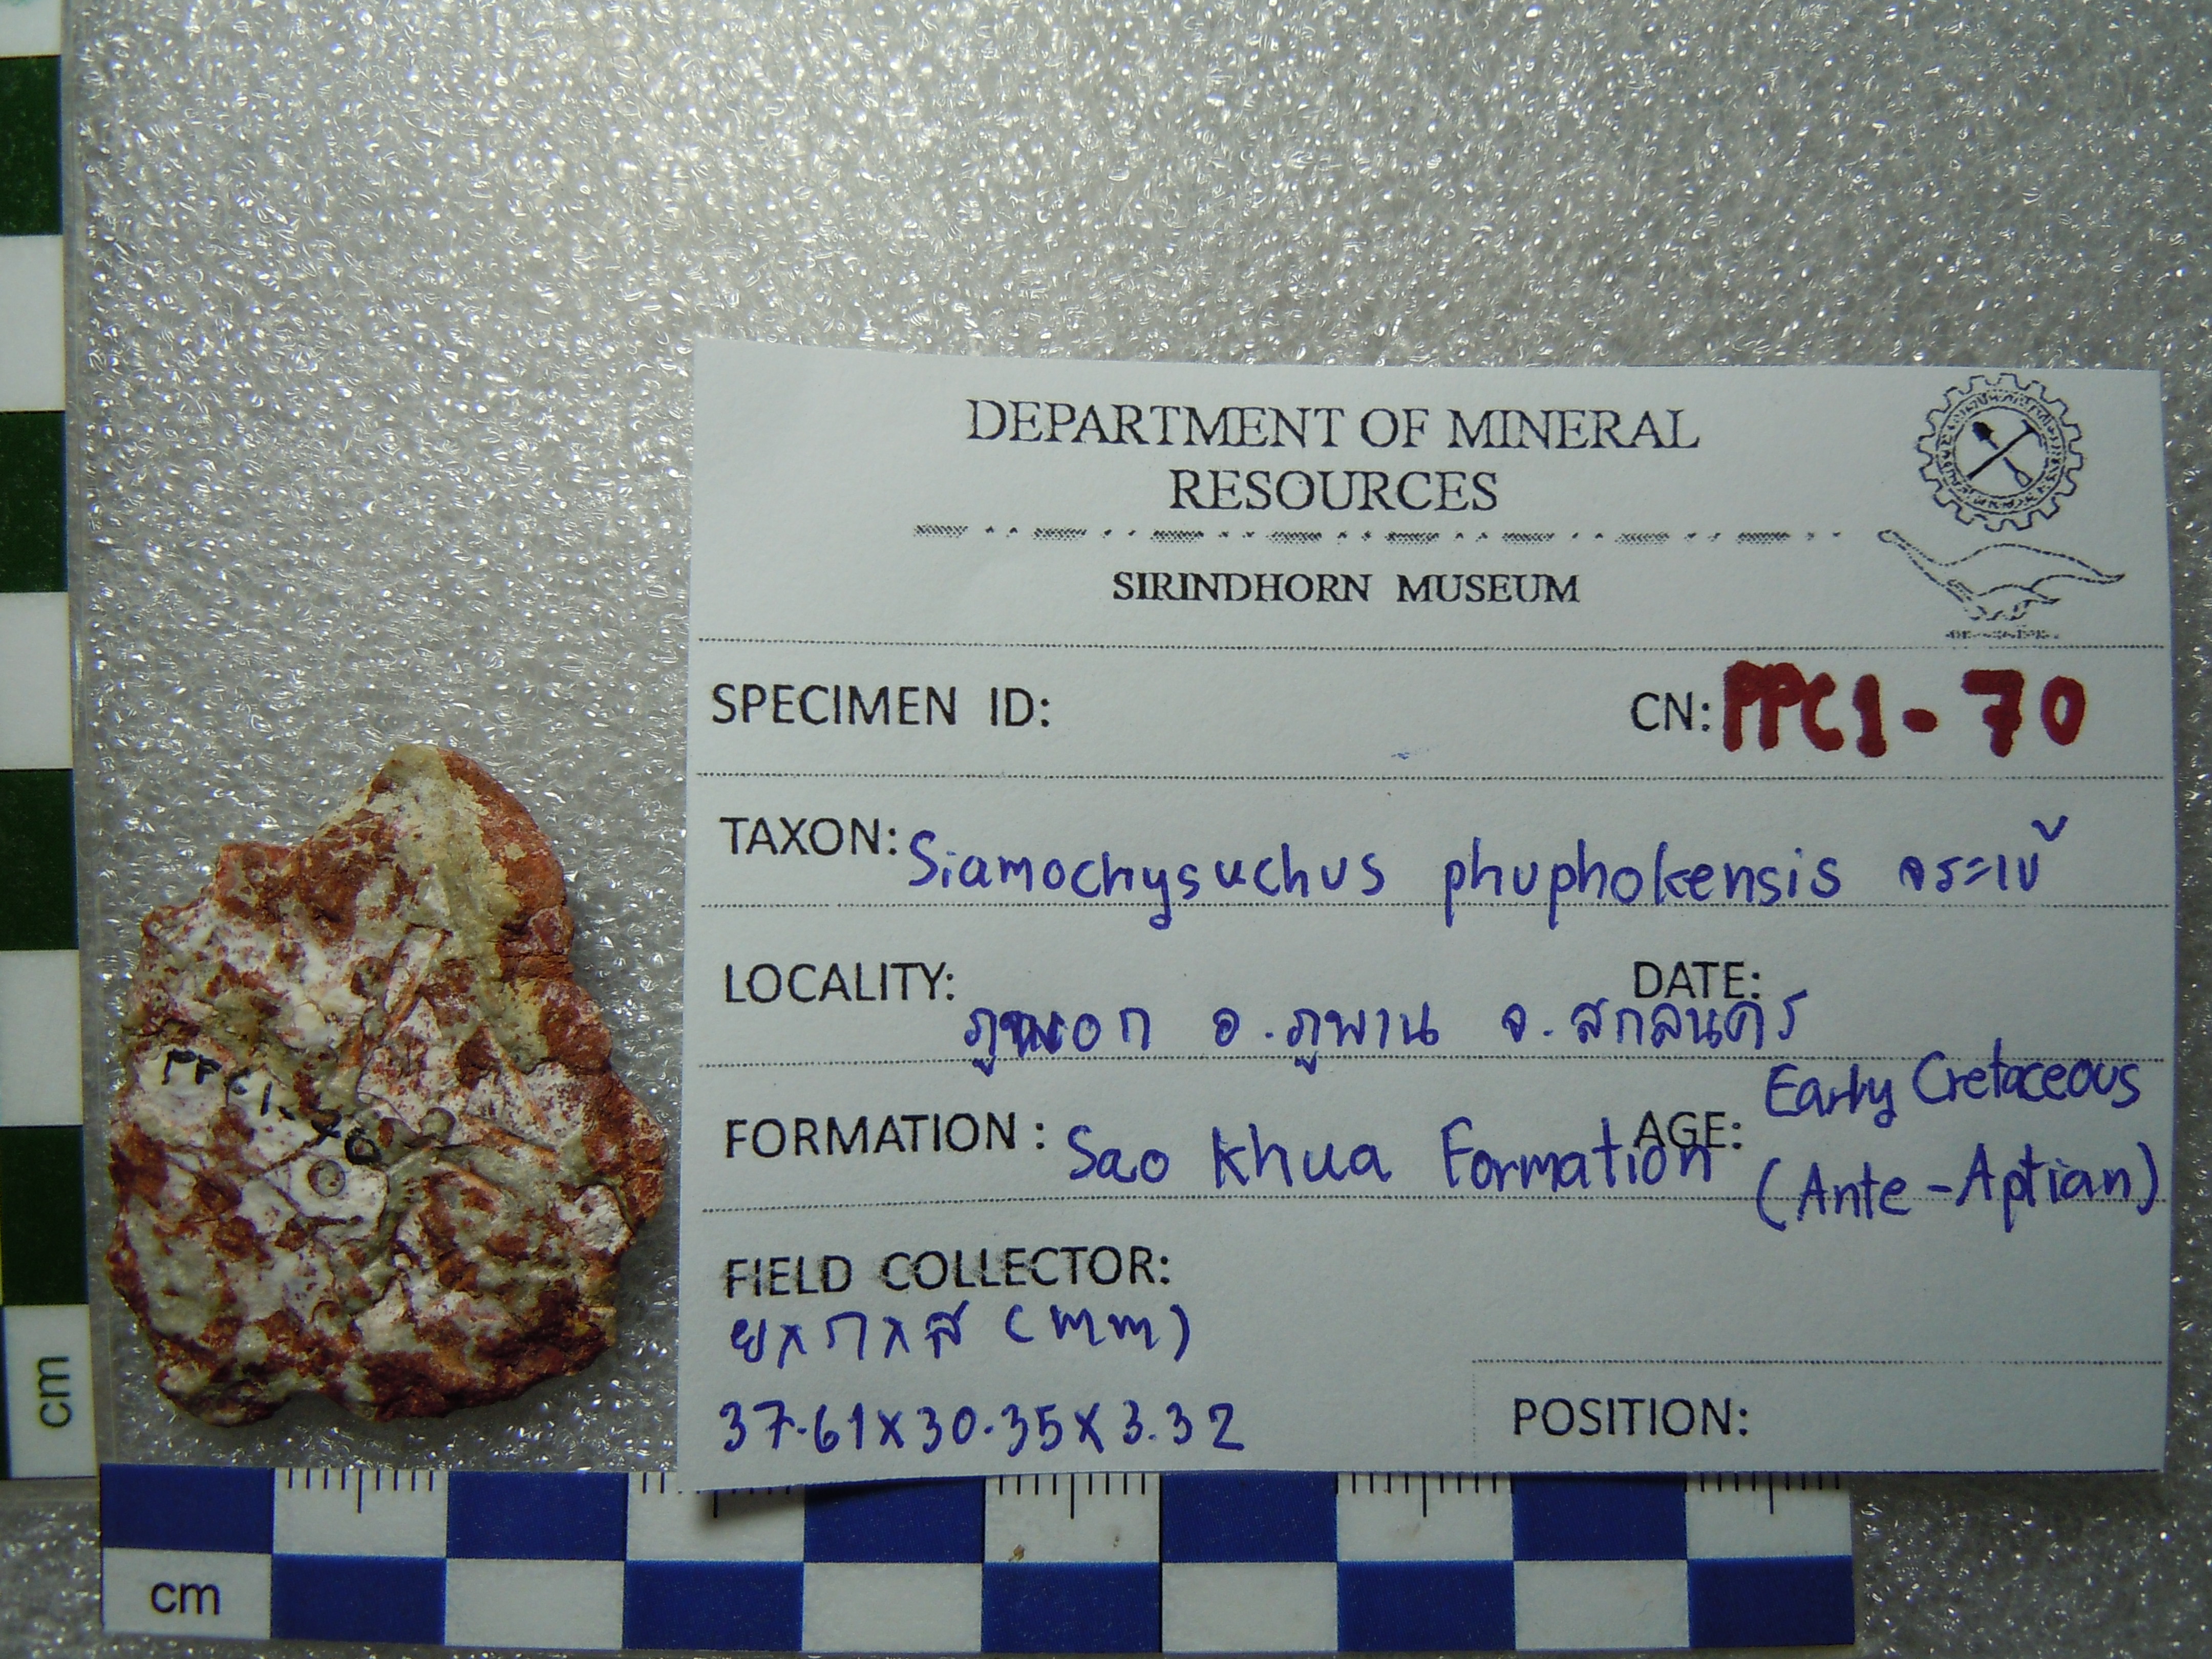 DEPARTMENT OF MINERAL
RESOURCES
SIRINDHORN MUSEUM
SPECIMEN ID:
CN: PPC1-70
TAXON: Siamochysuchus phuphokensis จระเข้
LOCALITY: ภูพอก อ.ภูพาน จ.สกลนคร
DATE:
FORMATION : Sao Khua Formation
AGE: Early Cretaceous
(Ante-Aptian)
FIELD COLLECTOR:
ยxกxส (mm)
37.61x30.35x3.32
POSITION:
PPC1-70
cm
cm